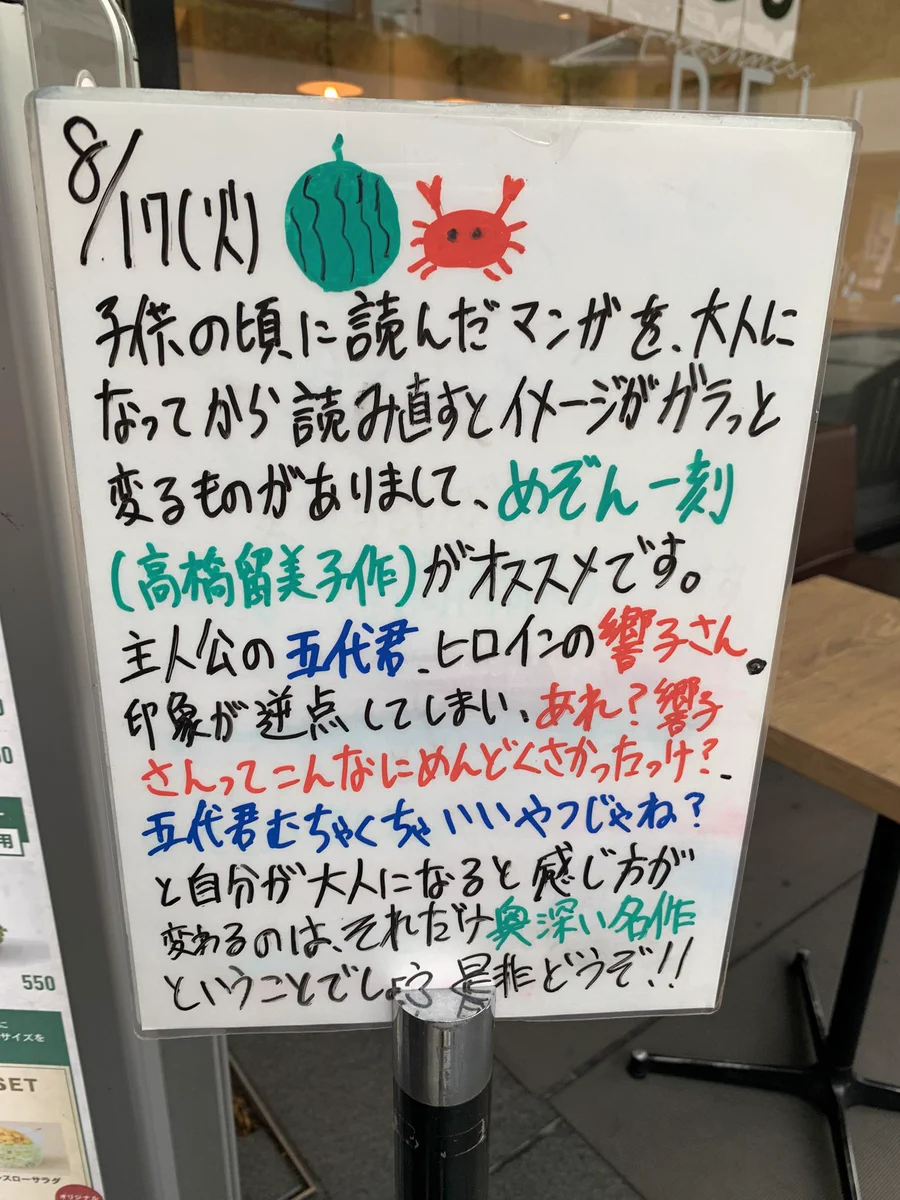 8/17(火)
子供の頃に読んだマンガを、大人に
なってから読み直すとイメージがガラっと
変るものがありまして、めぞん一刻
(高橋留美子作)がオススメです。
主人公の五代君、ヒロインの響子さん
印象が逆点してしまい、あれ?響子
さんってこんなにめんどくさかったっけ?
五代君むちゃくちゃいいやつじゃね?
と自分が大人になると感じ方が
変わるのは、それだけ奥深い名作
ということでしょう 是非どうぞ!!
用
550
サイズを
SET
スローサラダ
オリジナル